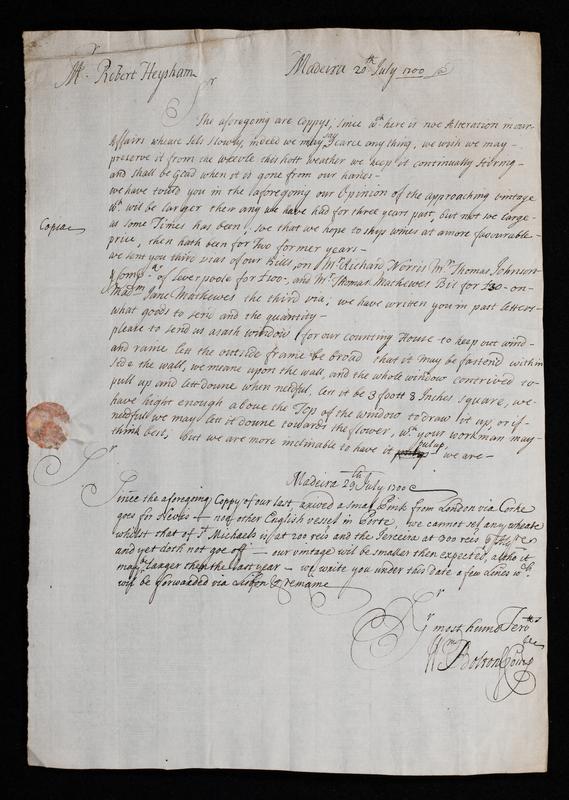 Mr. Robert Heysham
Madeira 20th July 1700
Sr
The aforegoing are Coppys, since wch here is noe Alteration in our
Affairs wheate sels slowly, indeed we may say scarce any thing, we wish we may
preserve it from the weevle this hott weather we keep it continually stiring
and shall be Glad when it is gone from our hands
we have tould you in the aforegoing our Opinion of the approaching vintage
wch wil be larger then any we have had for three years past, but not so large
Copia
as some Times has been, soe that we hope to ship wines at a more favourable
price, then hath been for two former years
we sent you third vias of our bills, on Mr Richard Norris Mr Thomas Johnson
& Comp of Liverpoole for £100, and Mr Thomas Mathewes Bil for £30 on
Madm Jane Mathewes the third via; we have written you in past letters
what goods to send and the quantity
please to send us a sash window for our counting House to keep out wind
and raine lett the outside frame be broad that it may be fastend within
side the wall, we meane upon the wall, and the whole window contrived to
pull up and lett doune when needful, lett it be 3 foott 8 Inches square, we
have hight enough aboue the Top of the window to draw it up, or if
needfull we may lett it doune towards the flower, wch your workman may
think best, but we are more inclinable to have it pul up we are
Sr
Madeira 29th July 1700
Since the aforegoing Coppy of our last, arived a smal Pink from London via Corke
goes for Nevis noe other English vessel in Porte, we cannot sel any wheate
whilst that of St Michaels is at 200 reis and the Terceira at 300 reis
and yet doth not goe off our vintage wil be smaler then expected, altho it
may be larger then the last year we write you under this date a few Lines wch
wil be forwarded via Lisbon & remaine
Sr
Yr most humb Servts
Wm Bolton